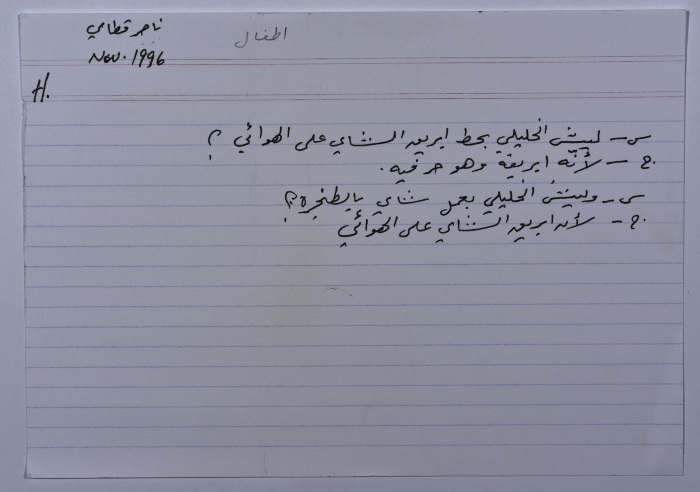 ناصر قطامي
اطفال
Nov. 1996
H.
س - ليش الخليلي بحط ابريق الشاي على الهوائي ؟
ج - لأنّه ابريقه وهو حر فيه.
س - وليش الخليلي بعمل شاي بالطنجرة ؟
ج - لأنه ابريق الشاي على الهوائي